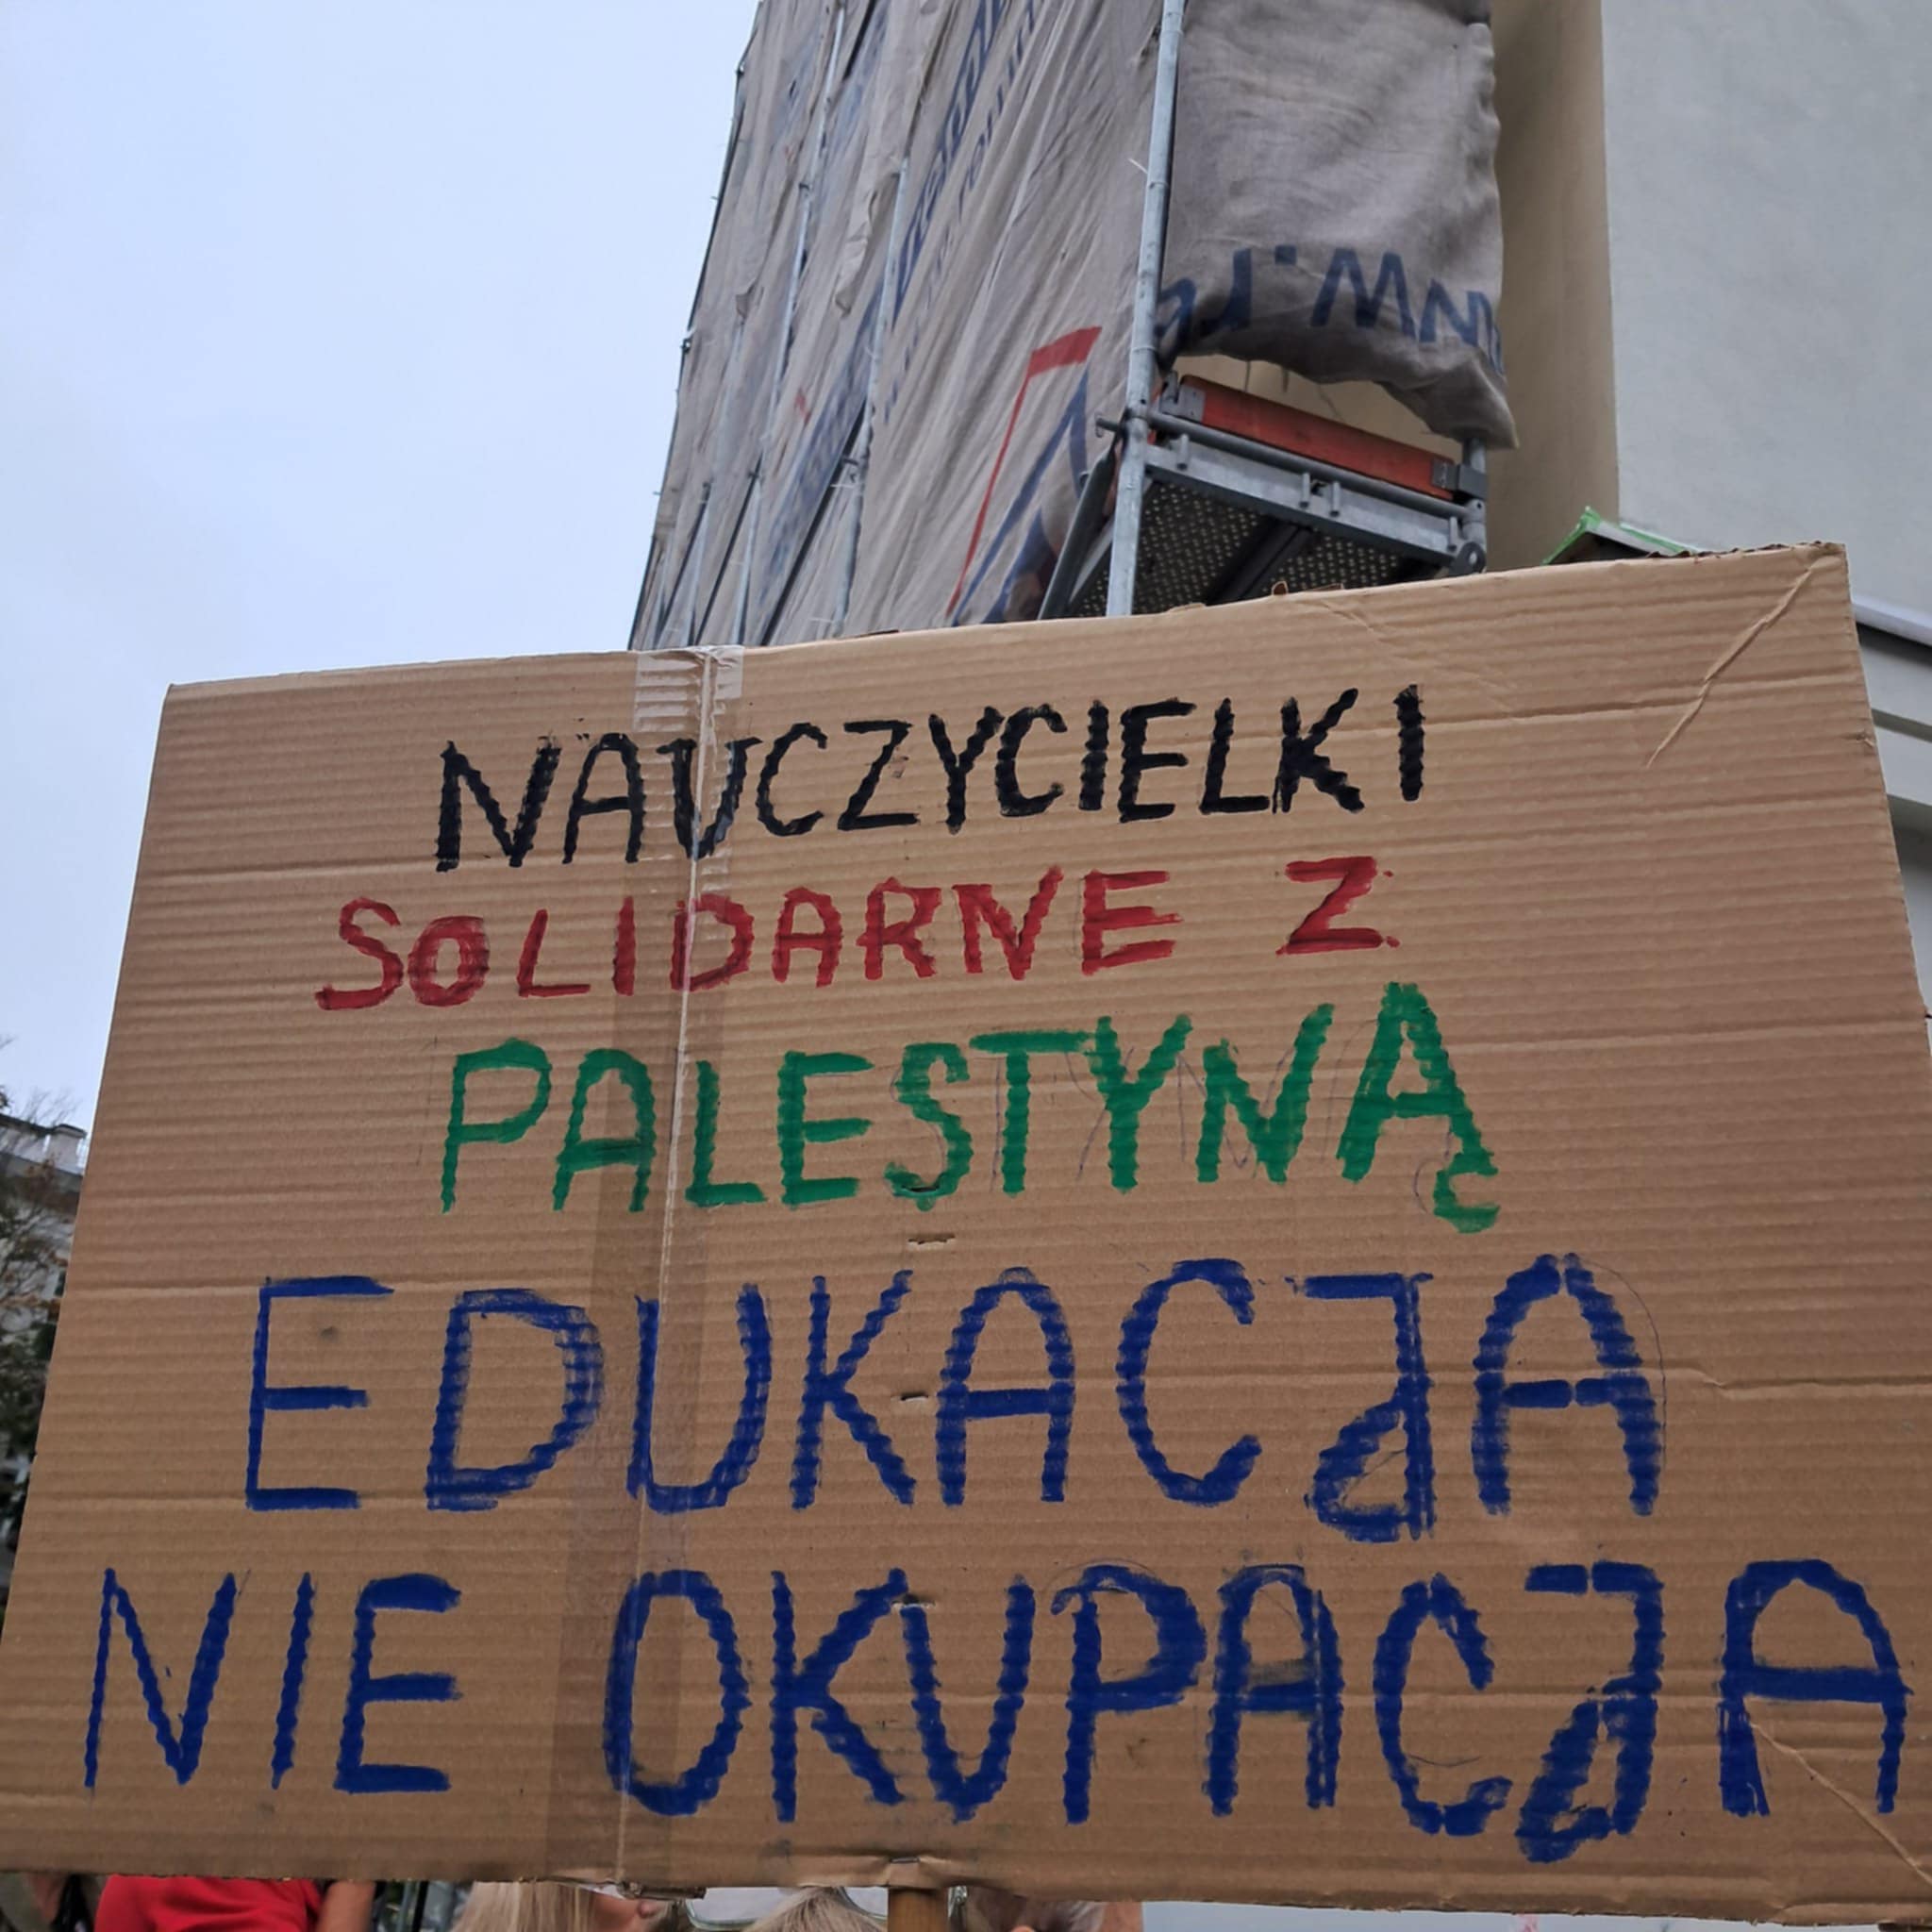 NAUCZYCIELKI
SOLIDARNE Z
PALESTYNĄ
EDUKACJA
NIE OKUPACJA